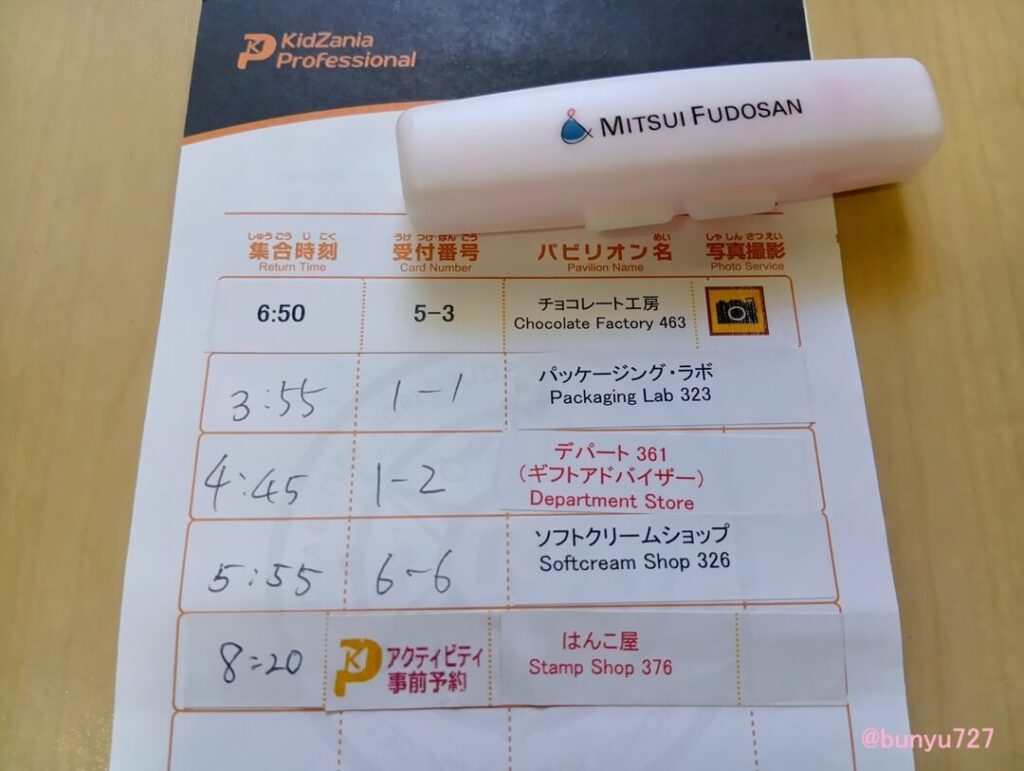 KidZania
Professional
MITSUI FUDOSAN
しゅうごう じ こく
集合時刻
Return Time
うけ つけ ばん ごう
受付番号
Card Number
めい
パビリオン名
Pavilion Name
しゃ しん さつ えい
写真撮影
Photo Service
6:50
5-3
チョコレート工房
Chocolate Factory 463
3:55
1-1
パッケージング・ラボ
Packaging Lab 323
4:45
1-2
デパート 361
(ギフトアドバイザー)
Department Store
5:55
6-6
ソフトクリームショップ
Softcream Shop 326
8:20
アクティビティ
事前予約
はんこ屋
Stamp Shop 376
@bunyu727